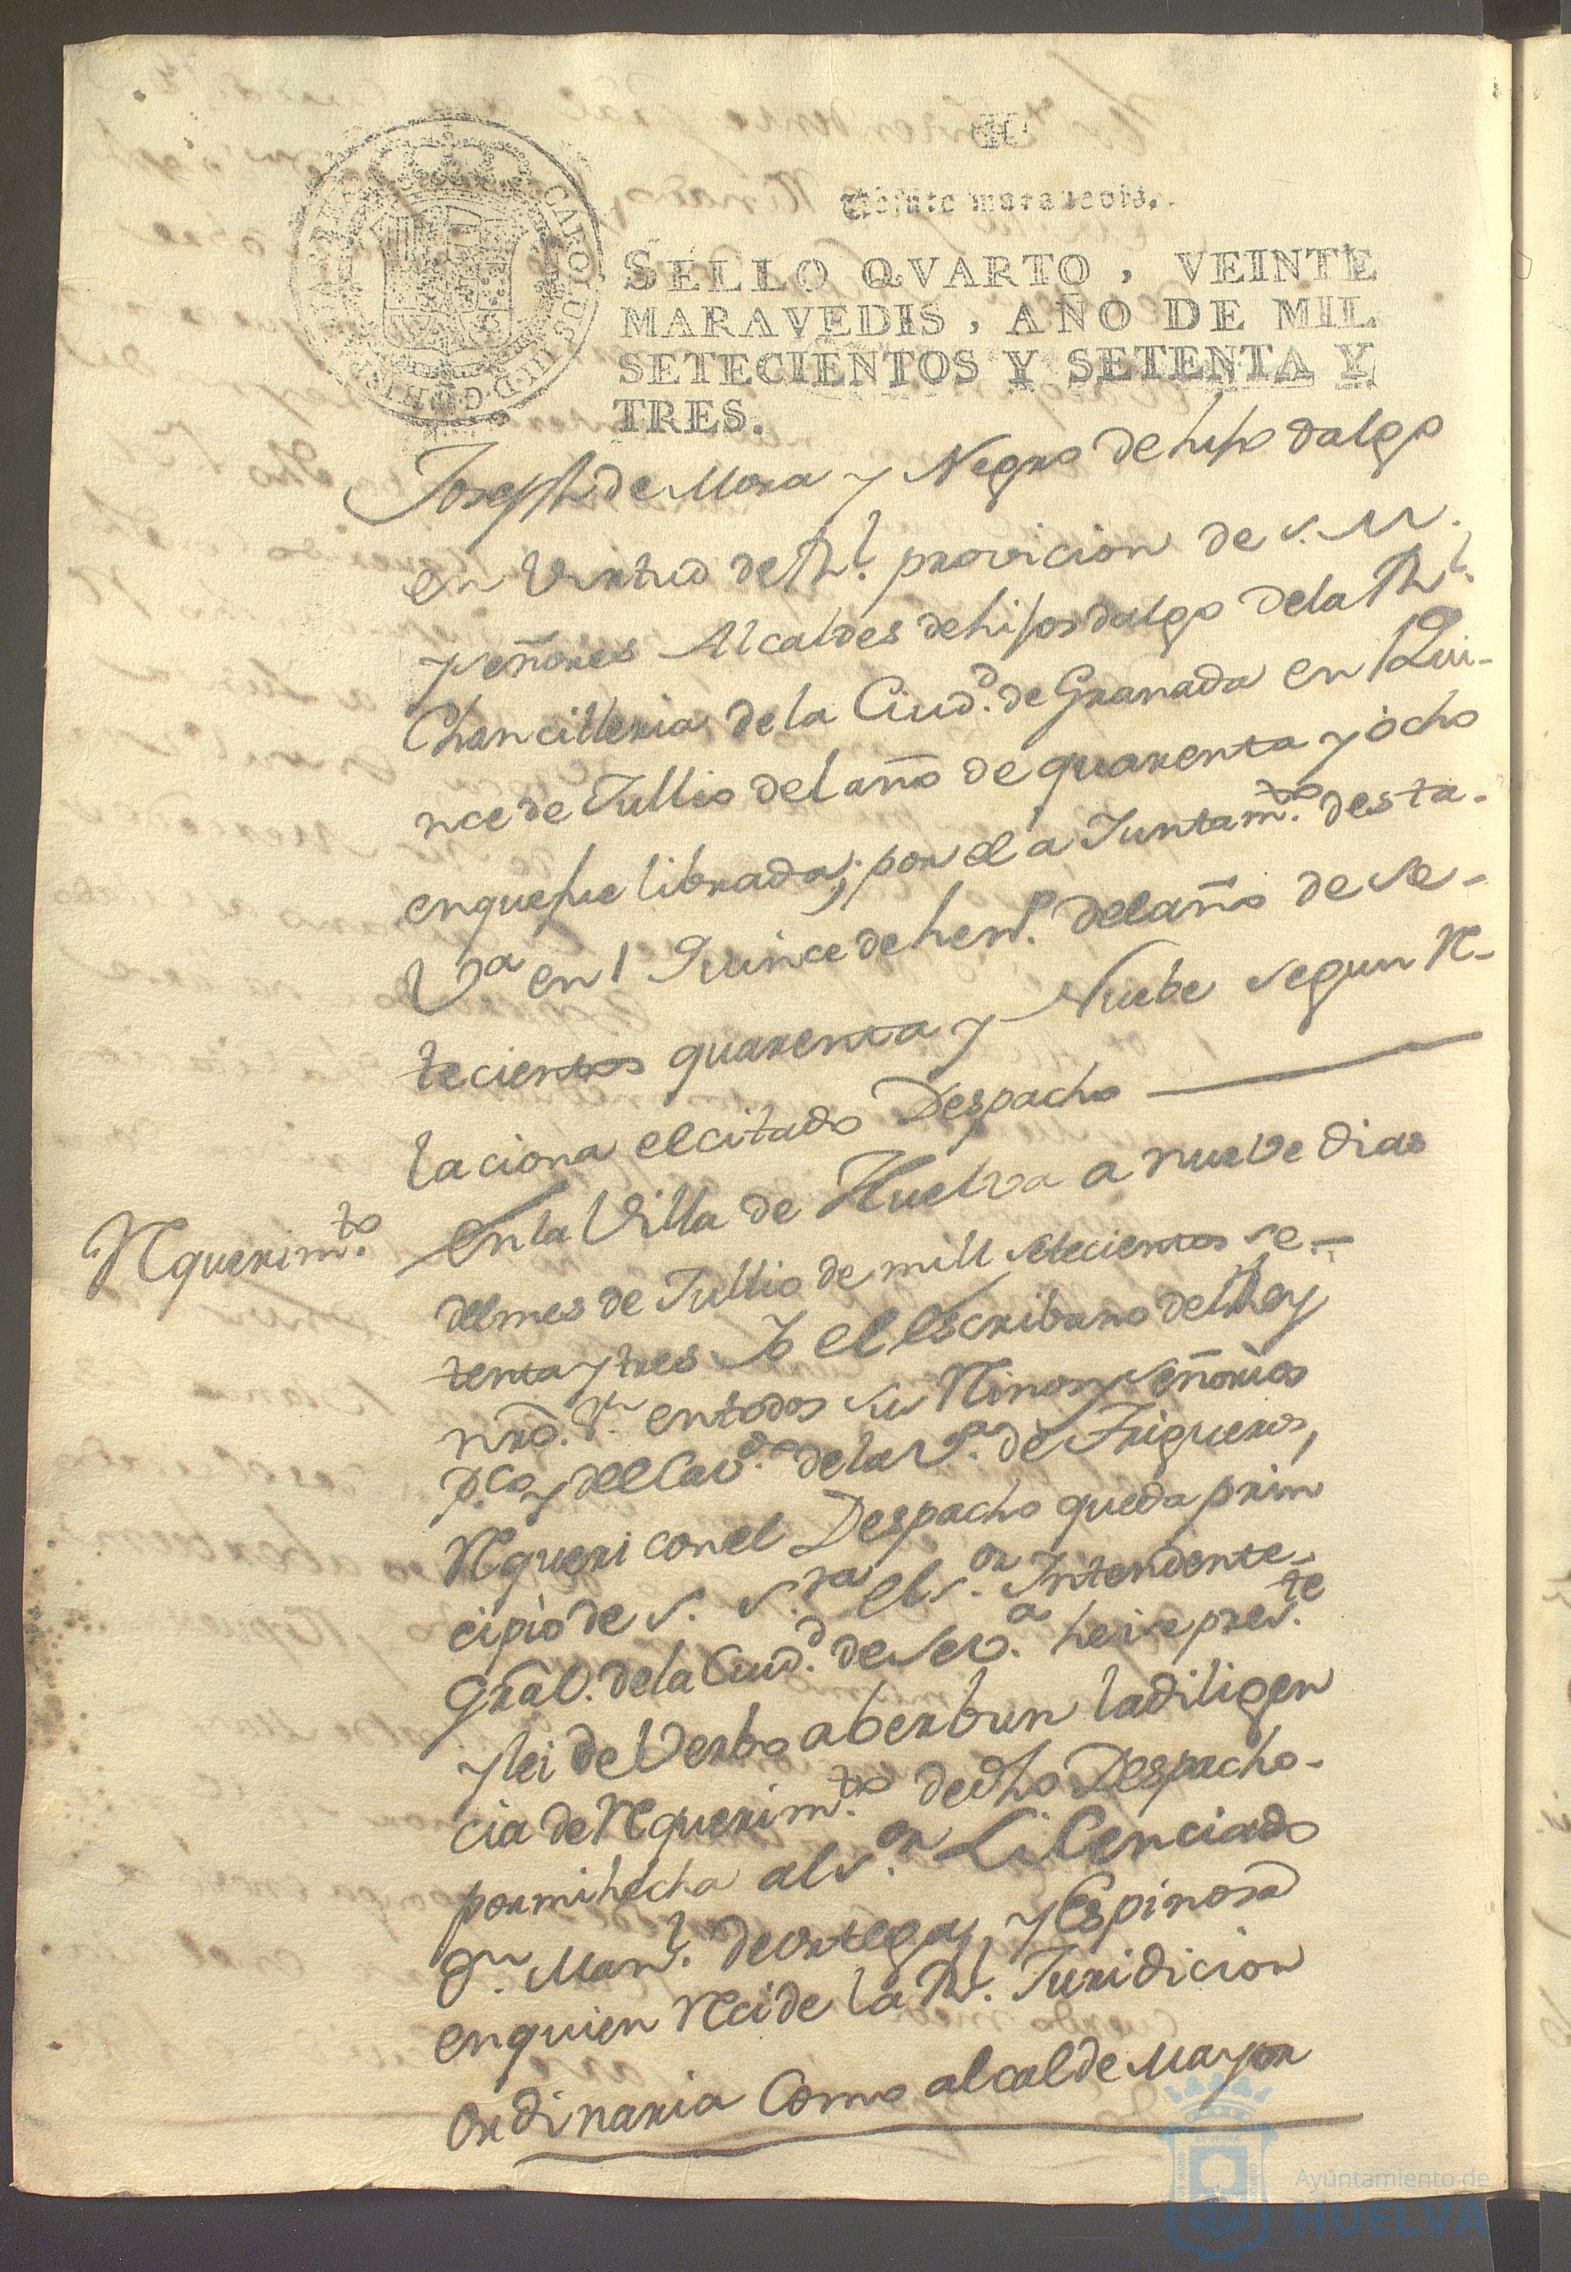 Veinte maravedis.
SELLO QVARTO, VEINTE
MARAVEDIS, AÑO DE MIL
SETECIENTOS Y SETENTA Y
TRES.
CAROLUS III D.G.
Joseph de Mora y Negro de hijo dalgo
en Virtud de Rl. provicion de S. M.
y señores Alcaldes de hijos dalgo de la Rl.
Chancilleria de la Ciud.d de Granada en Qui-
nce de Jullio del año de quarenta y ocho
en que fue librada; por el a Juntam.to desta
Va en Quince de hen.o del año de se-
tecientos quarenta y Nuebe segun Re-
laciona el citado Despacho
Requerim.to
en la Villa de Huelva a nueve dias
del mes de Jullio de mill setecientos se-
tenta y tres Yo el escribano del Rey
nro. Sr. en todos sus Reinos y señorios
p.co y del Cav.do de la V.a de Trigueros,
Requeri con el Despacho que da prin
cipio de S. S.ria el S.or Intendente
Gral. de la Ciud.d de Sev.a heise pres.te
y lei de Verbo aberbun la diligen
cia de Requerim.to de dho Despacho
por mi hecha al S.or Licenciado
Dn. Man.l de Ortega, y Espinosa
en quien Recide la Rl. Juridicion
Ordinaria Como alcalde Mayor
Ayuntamiento de
HUELVA